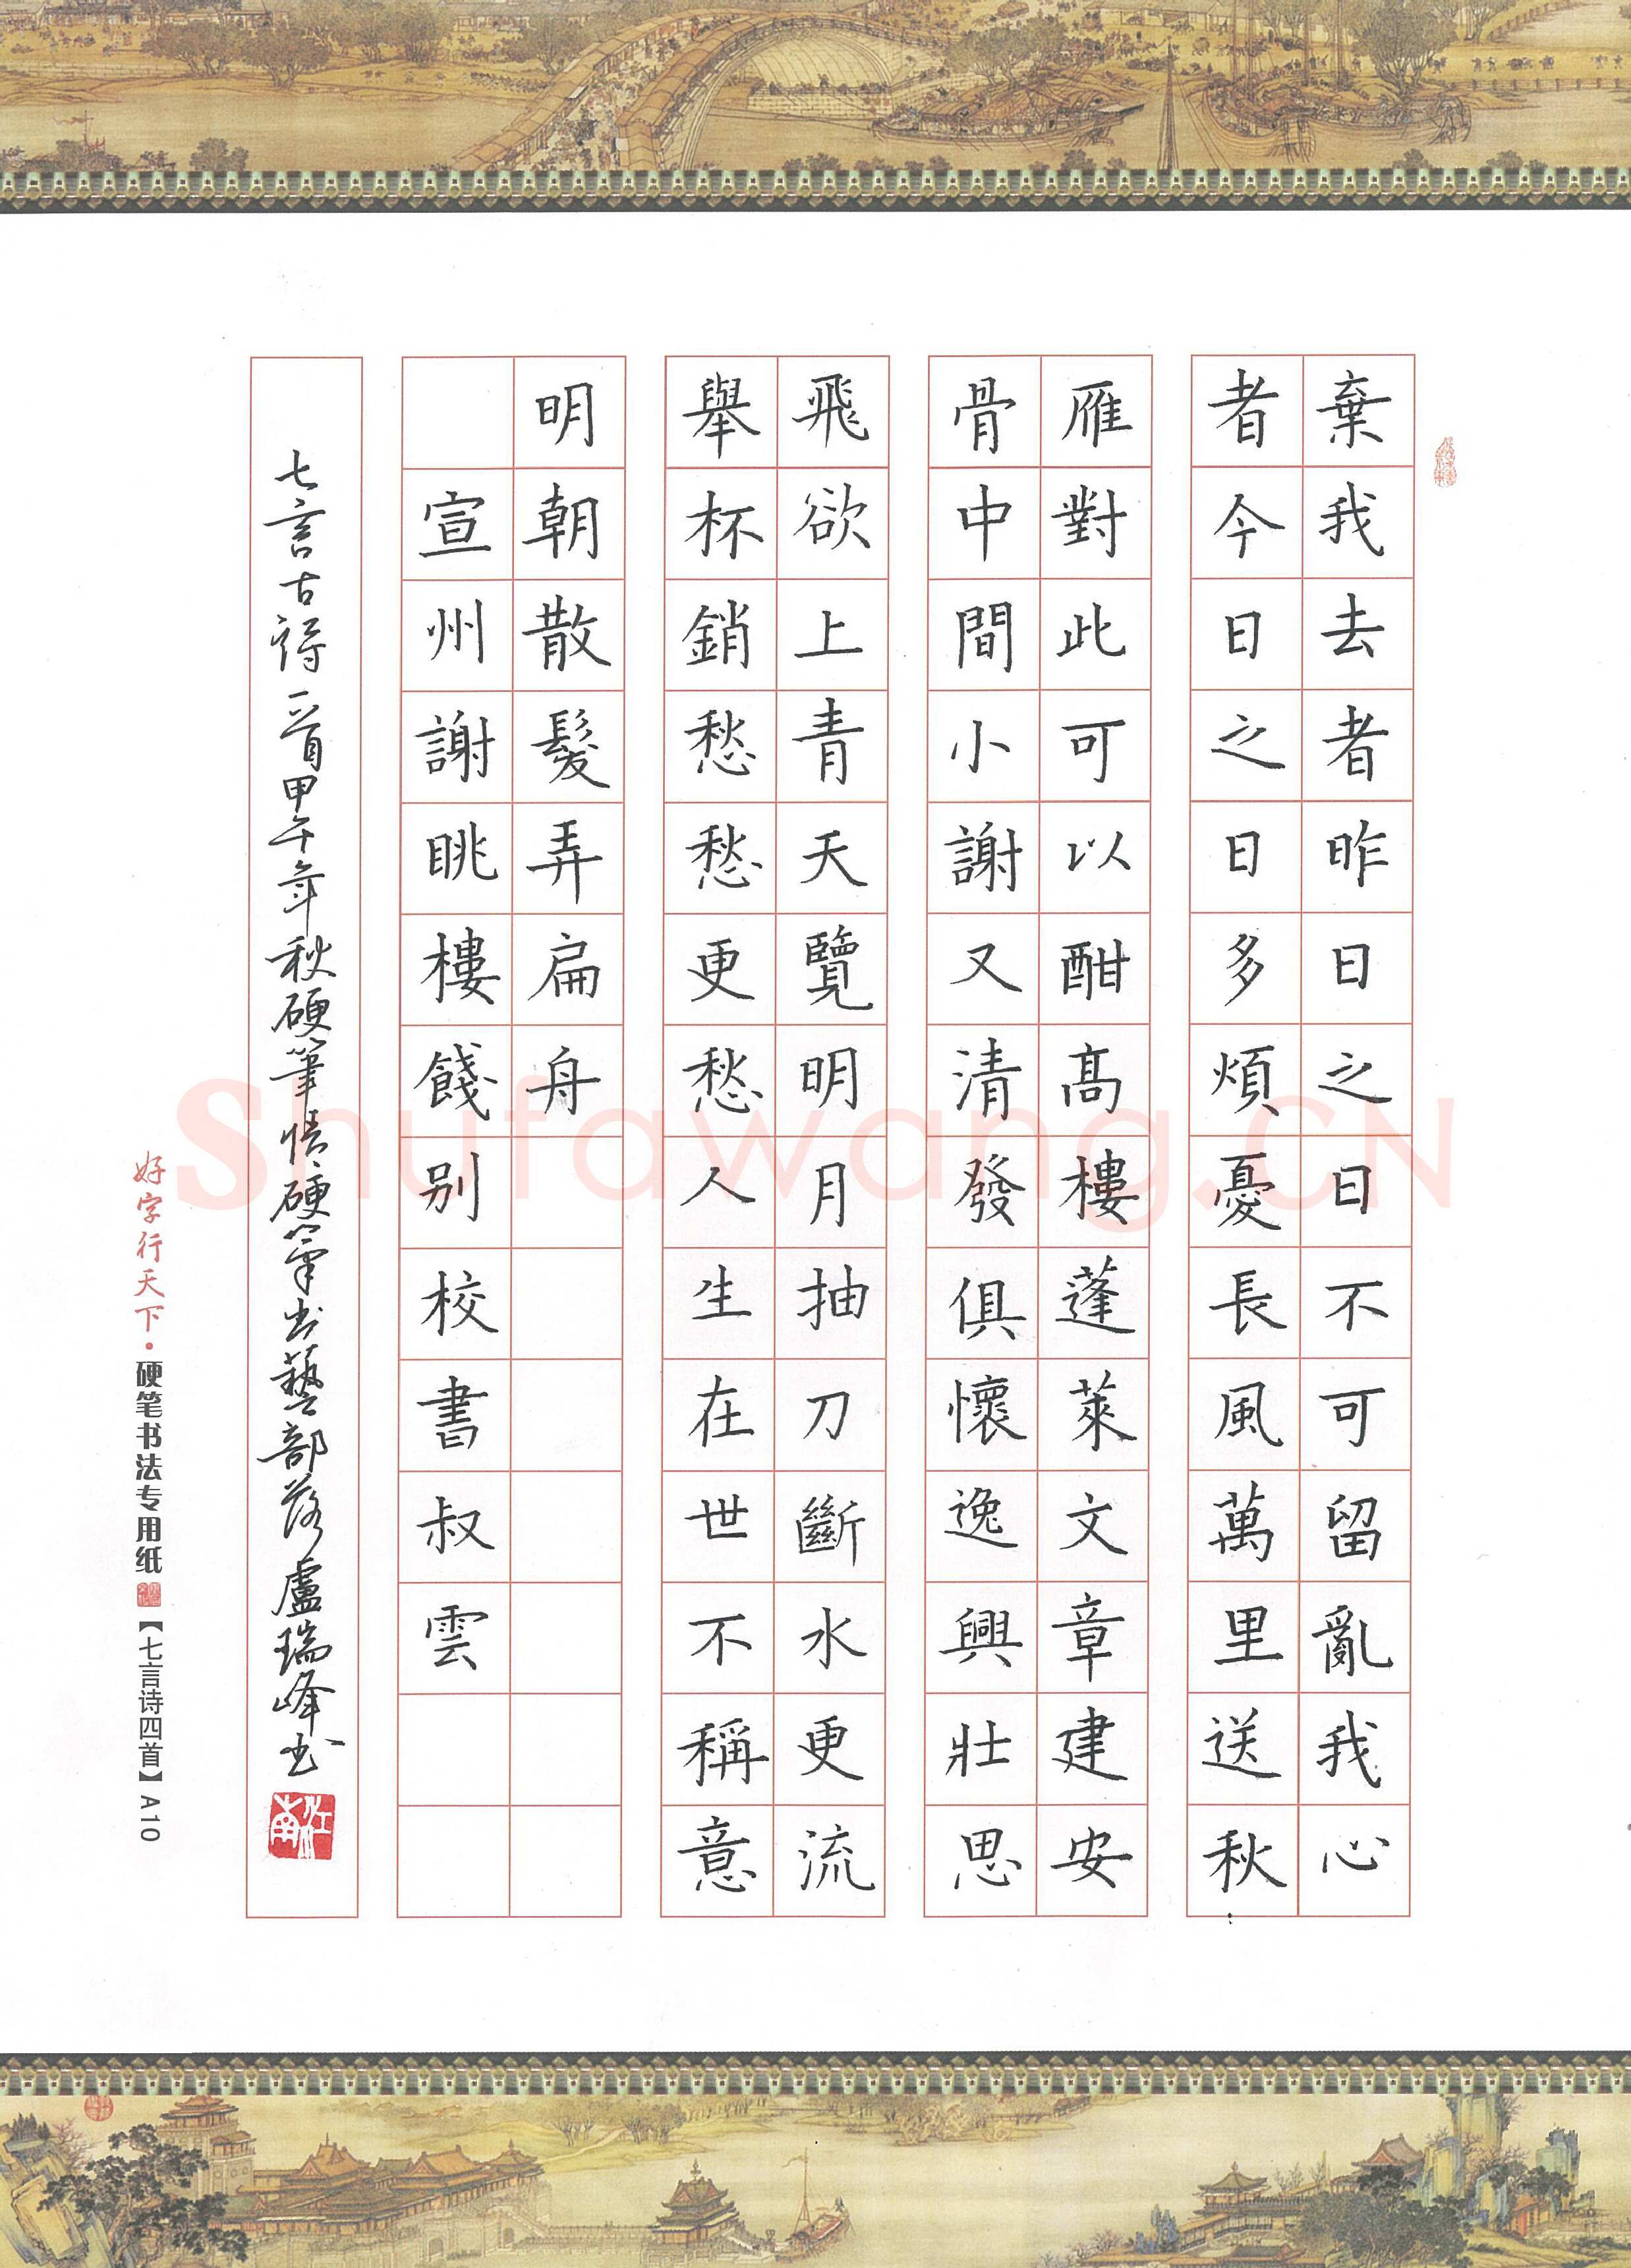 棄我去者昨日之日不可留亂我心
者今日之日多煩憂長風萬里送秋
雁對此可以酣髙樓蓬萊文章建安
骨中間小謝又清發俱懷逸興壯思
飛欲上青天覽明月抽刀斷水更流
舉杯銷愁愁更愁人生在世不稱意
明朝散髮弄扁舟
宣州謝眺樓餞别校書叔雲
七言古詩一首甲午年秋硬筆情硬筆书藝部落盧瑞峰书
江南
好字行天下·硬笔书法专用纸【七言诗四首】A10
Shufawang.CN